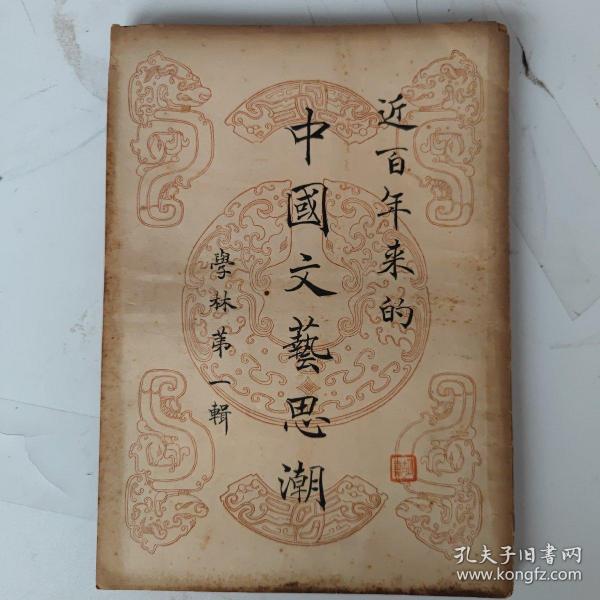 近百年来的
中國文藝思潮
學林第一輯
孔夫子旧書网
www.kongfz.com